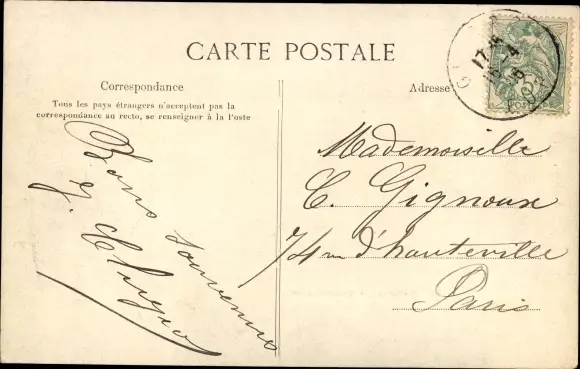 CARTE POSTALE
Correspondance
Tous les pays étrangers n'acceptent pas la
correspondance au recto, se renseigner à la Poste
Adresse
Bons souvenirs
Mademoiselle
C. Gignoux
74 rue d'hauteville
Paris
17